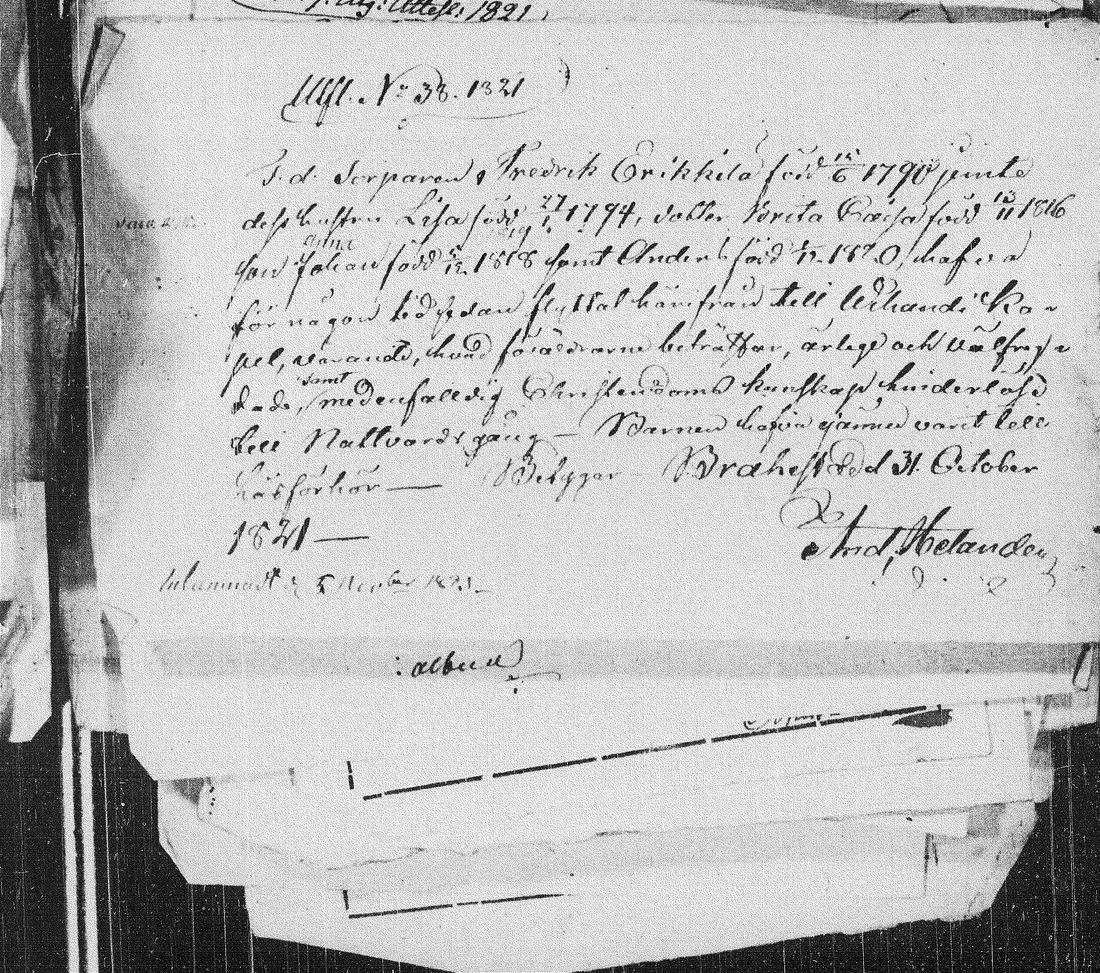 Attest: 1821.
Utfl. No 38. 1821
F.d. Torparen Fredrik Erikkilä född 14/6 1790 jemte
dess hustru Lisa född 27/1 1794, dotter Brita Cajsa född 13/11 1816
son Johan född 1818 samt Anders född 1820, hafva
för någon tid sedan flyttat härifrån till Uhandi Ka-
pel, varande, hvad föräldrarne beträffar, ärlige och välfrej-
dade, samt med enfalldig Christendoms kunskap, hinderlöse
till Nattvards gång — Barnen hafva jämnväl varit till
Läsförhör — Betygar Brahestad d 31. October
1821 —
And, Helander
Inlämnadt d 5 1821.